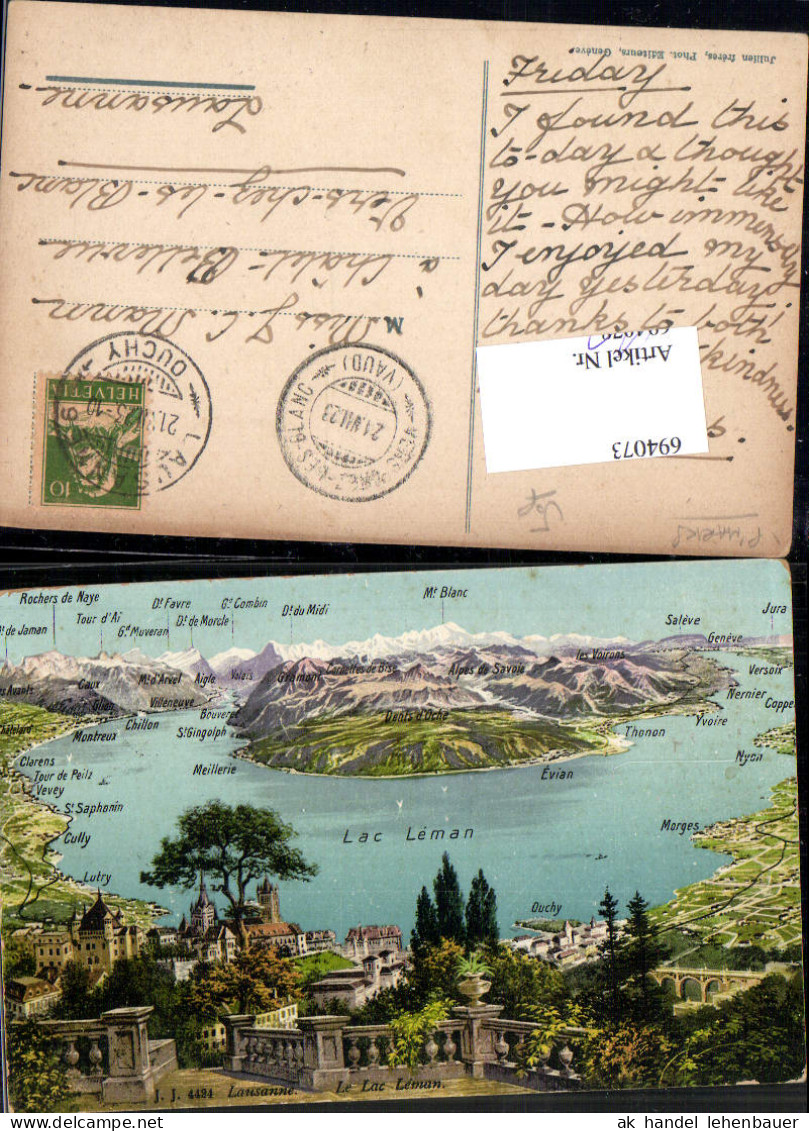 Jullien frères, Phot. Editeurs, Genève
Friday
I found this
to-day & thought
you might like
it - How immensely
I enjoyed my
day yesterday
thanks to both!
kindness.
M Miss J. C. Mann
à Châlet-Bellevue
Vers-chez-les-Blanc
Lausanne-
HELVETIA
10
OUCHY
(VAUD)
21.VII.23
Artikel Nr.
694073
Rochers de Naye
Tour d'Aï
Dt Favre
Gd Muveran
Dt de Morcle
Gd Combin
Dt du Midi
Mt Blanc
Salève
Genève
Jura
Dt de Jaman
Caux
Glion
Mt d'Arvel
Aigle
Valais
Villeneuve
Gramont
Cornettes de Bise
Alpes de Savoie
les Voirons
Versoix
Nernier
Yvoire
Montreux
Chillon
Bouveret
St Gingolph
Dents d'Oche
Thonon
Nyon
Clarens
Tour de Peilz
Vevey
Meillerie
Évian
St Saphorin
Cully
Lac Léman
Morges
Lutry
Ouchy
J. J. 4424 Lausanne. Le Lac Léman.
ak handel lehenbauer